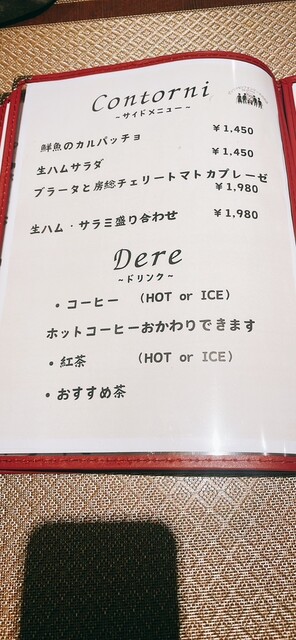 Contorni
~サイドメニュー~
鮮魚のカルパッチョ ￥1,450
生ハムサラダ ￥1,450
ブラータと房総チェリートマトカプレーゼ
￥1,980
生ハム・サラミ盛り合わせ ￥1,980
Dere
~ドリンク~
・コーヒー (HOT or ICE)
ホットコーヒーおかわりできます
・紅茶 (HOT or ICE)
・おすすめ茶